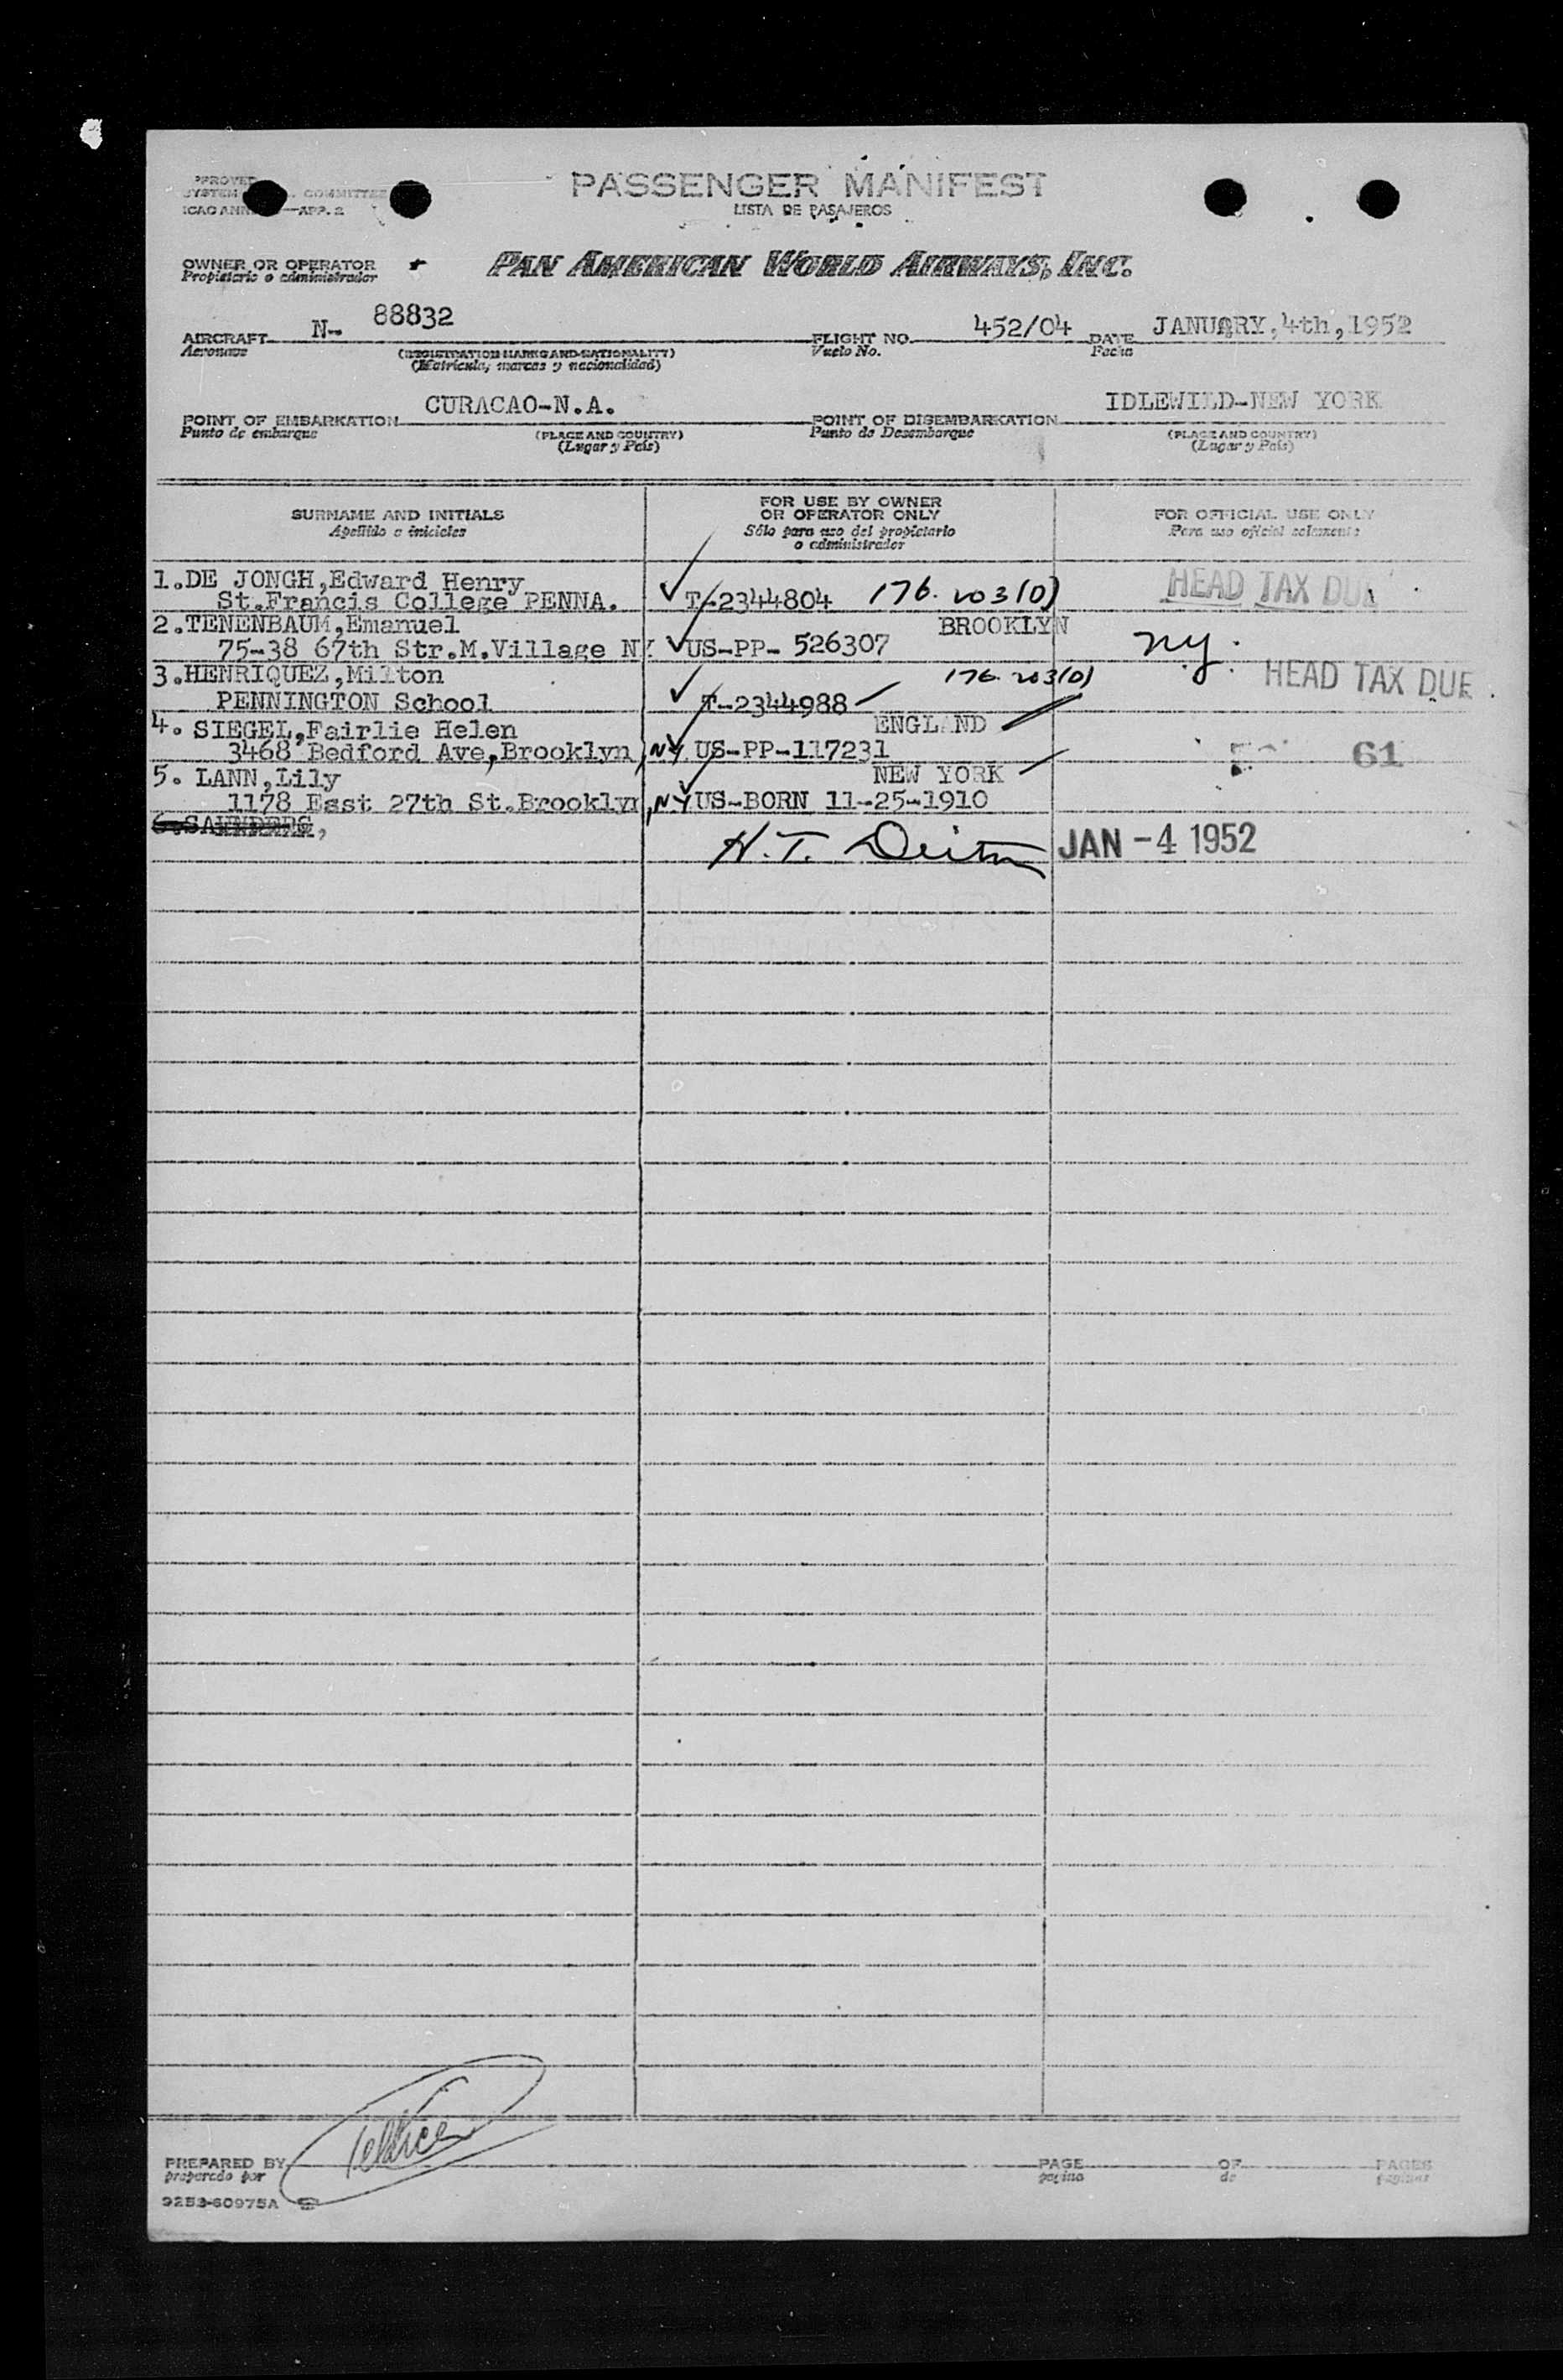 PASSENGER MANIFEST
LISTA DE PASAJEROS
COMMITTEE
APP. 2
OWNER OR OPERATOR
Propietario o administrador
PAN AMERICAN WORLD AIRWAYS, INC.
AIRCRAFT N- 88832 FLIGHT NO. 452/04 DATE JANUARY,4th,1952
Aeronave (REGISTRATION MARKS AND NATIONALITY) Vuelo No. Fecha
(Matrícula, marcas y nacionalidad)
POINT OF EMBARKATION CURACAO-N.A. POINT OF DISEMBARKATION IDLEWILD-NEW YORK
Punto de embarque (PLACE AND COUNTRY) Punto de Desembarque (PLACE AND COUNTRY)
(Lugar y País) (Lugar y País)
SURNAME AND INITIALS FOR USE BY OWNER OR OPERATOR ONLY FOR OFFICIAL USE ONLY
Apellido e iniciales Sólo para uso del propietario o administrador Para uso oficial solamente
1.DE JONGH,Edward Henry HEAD TAX DUE
St.Francis College PENNA. T-2344804 176.203(0)
2.TENENBAUM,Emanuel BROOKLYN
75-38 67th Str.M.Village NY US-PP- 526307 ny.
3.HENRIQUEZ,Milton 176.203(0) HEAD TAX DUE
PENNINGTON School T-2344988
4. SIEGEL,Fairlie Helen ENGLAND
3468 Bedford Ave,Brooklyn,NY US-PP-117231 61
5. LANN,Lily NEW YORK
1178 East 27th St.Brooklyn,NY US-BORN 11-25-1910
6.SAUNDERS,
H.T. JAN -4 1952
PREPARED BY PAGE OF PAGES
preparado por pagina de paginas
9253-60975A